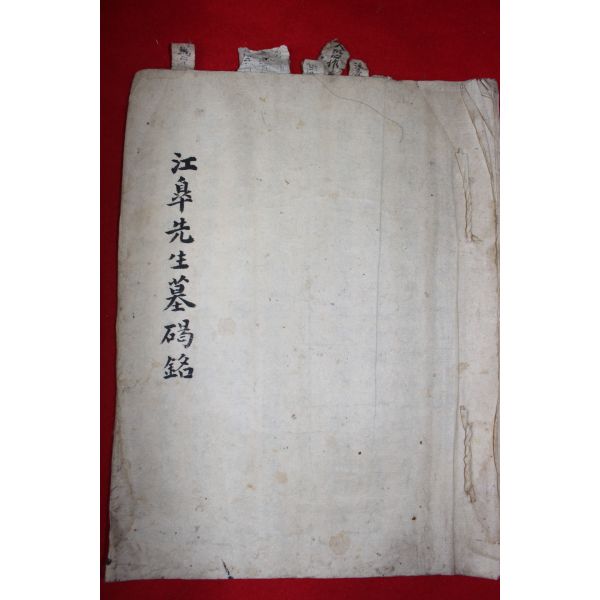 江皐先生墓碣銘